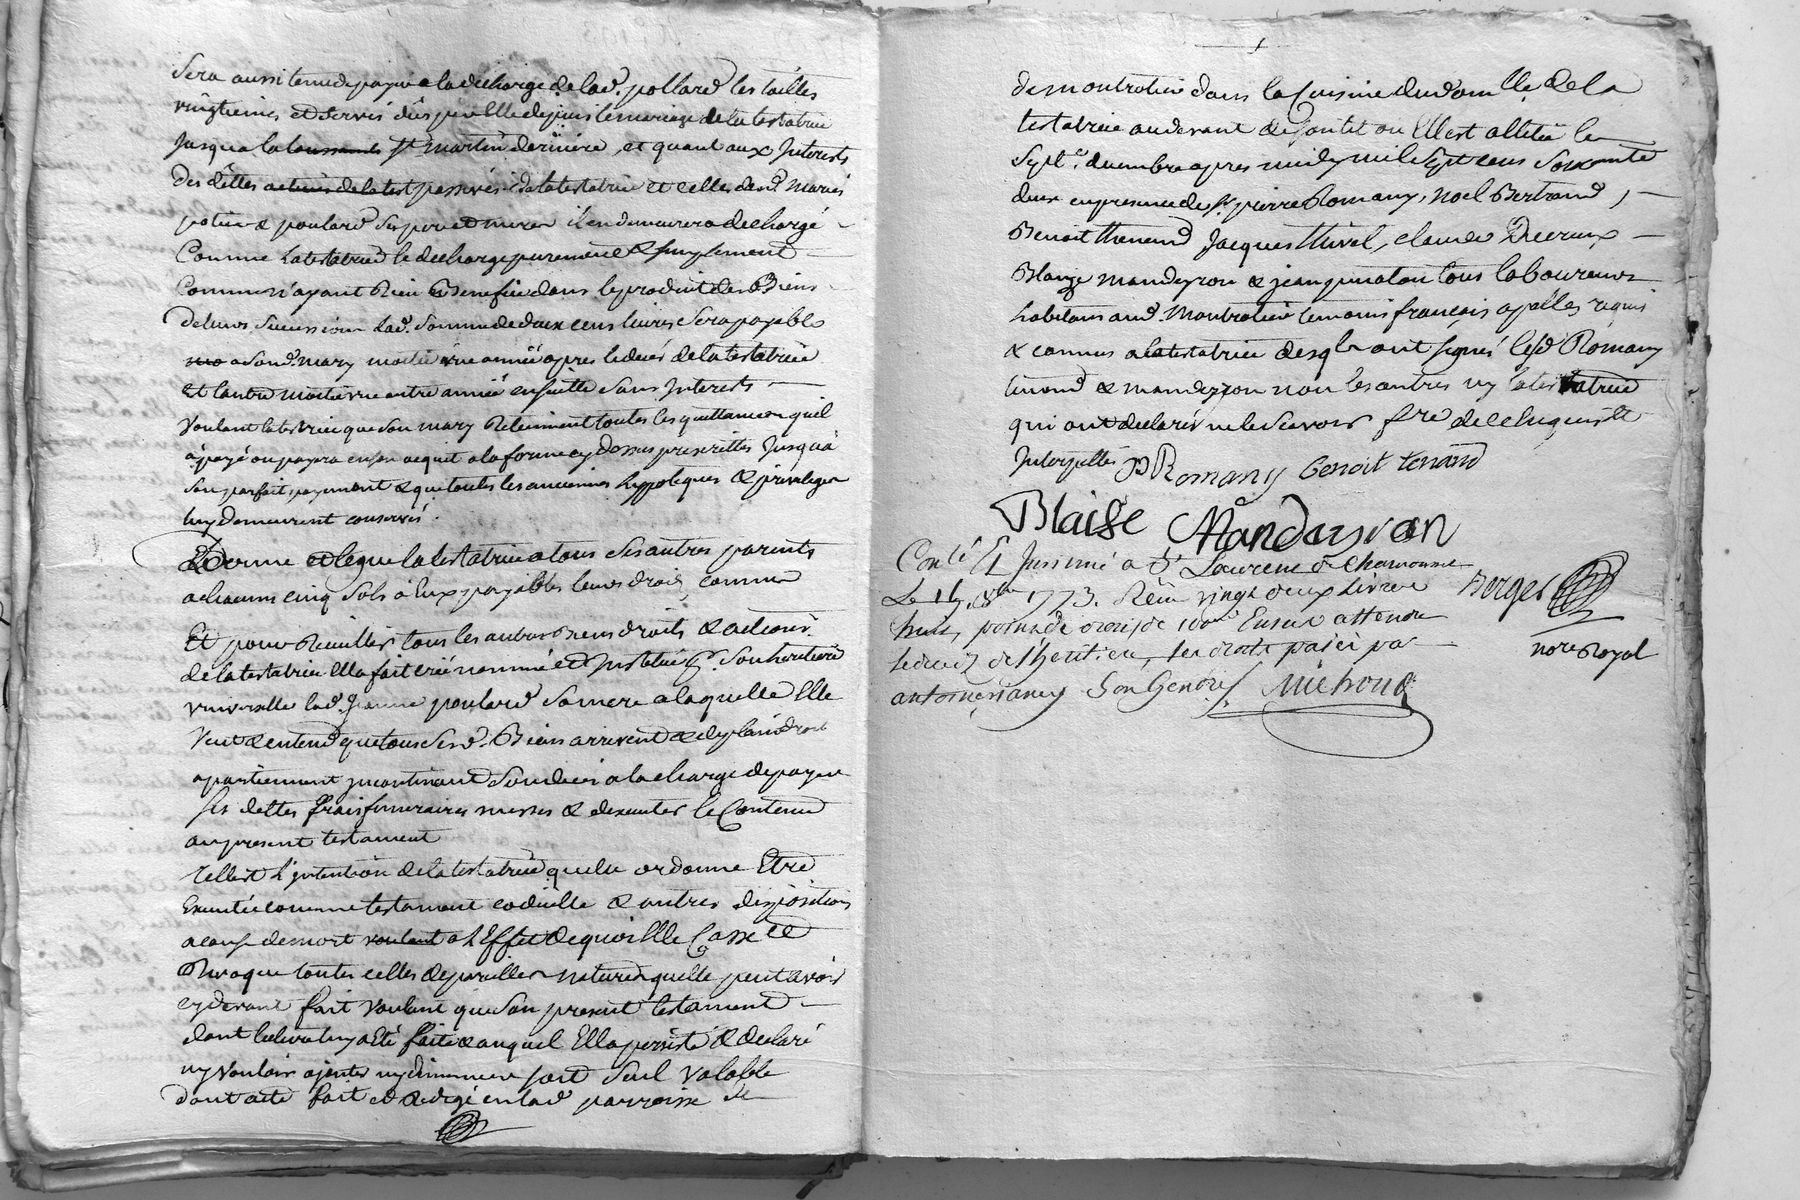 Sera aussi tenu de payer a la décharge de lad. pollard les tailles
vingtiemes et servis dus par elle depuis le mariage de la testatrice
Jusqua la toussaints St martin derniere, et quant aux Interests
des dettes actives de la test passives de la testatrice et celles desd. mariés
potier & poulard ses pere et mere il en demeurera dechargé
Comme la testatrice le decharge purement & simplement
Comme n'ayant Rien Beneficié dans le produit des Biens
de leurs succession lad. somme de deux cens livres sera payable
a sond. mary moitié une année apres le decés de la testatrice
et l'autre moitié une autre année ensuitte sans Interests
voulant la testatrice que son mary Retiennent toutes les quittances quil
a payé ou payera en son acquit a la forme cy dessus prescrittes Jusqua
son parfait payement & que toutes les anciennes hypoteques & privileges
luy demeurent conservés.
Donne et legue la testatrice a tous ses autres parents
a chacuns cinq sols à Eux payables leurs droits comme
Et pour Recuillir tous les autres Biens droits & actions
de la testatrice Ella fait créé nommé et Institué pr. son heritiere
universelle lad. Jeanne poulard sa mere a laquelle Elle
veut & entend que tous sesd. Biens arrivent & de plein droit
apartiennent incontinant son decés a la charge de payer
ses dettes frais funeraires messes & dexecuter le Contenu
au present testament
Telle est l'intention de la testatrice quelle ordonne Etre
Executée comme testament codicille & autres dispositions
a cause de mort voulant a l'Effet de quoi Elle Casse et
Revoque toutes celles de pareilles natures quelle peut avoir
cy devant fait voulant que son present testament
dont lecture luy a Eté faite & auquel Ella persisté & declaré
ny vouloir ajouter ny diminuer soit seul valable
dont acte fait et Redigé en lad parroisse de
de montrotier dans la Cuisine du domille de la
testatrice au devant de son lit ou Elle est allitée le
Sept. decembre apres midy mil sept cens soixante
deux en presence de Sr pierre Romany, Noel Bertrand,
Benoit thenend Jacques thivel, claude Ducreux
Blaize mandeyron & jean pinaton tous laboureurs
habitans aud. Montrotier temoins français apellés requis
& connus a la testatrice desqls ont signés lesd Romany
tenand & mandeyron non les autres ny la testatrice
qui ont declarés ne le scavoir fre de ce Enquis &
Interpellés PRomany benoit tenand
Blaise Mandeyron
Conlé & Insinué a St Laurent de Chamousset
Le 17. 1773. Reçu vingt deux Livres
Berger
nore Royal
le decès de l'heritiere, les droits païés par
antoine son Gendre Michoud